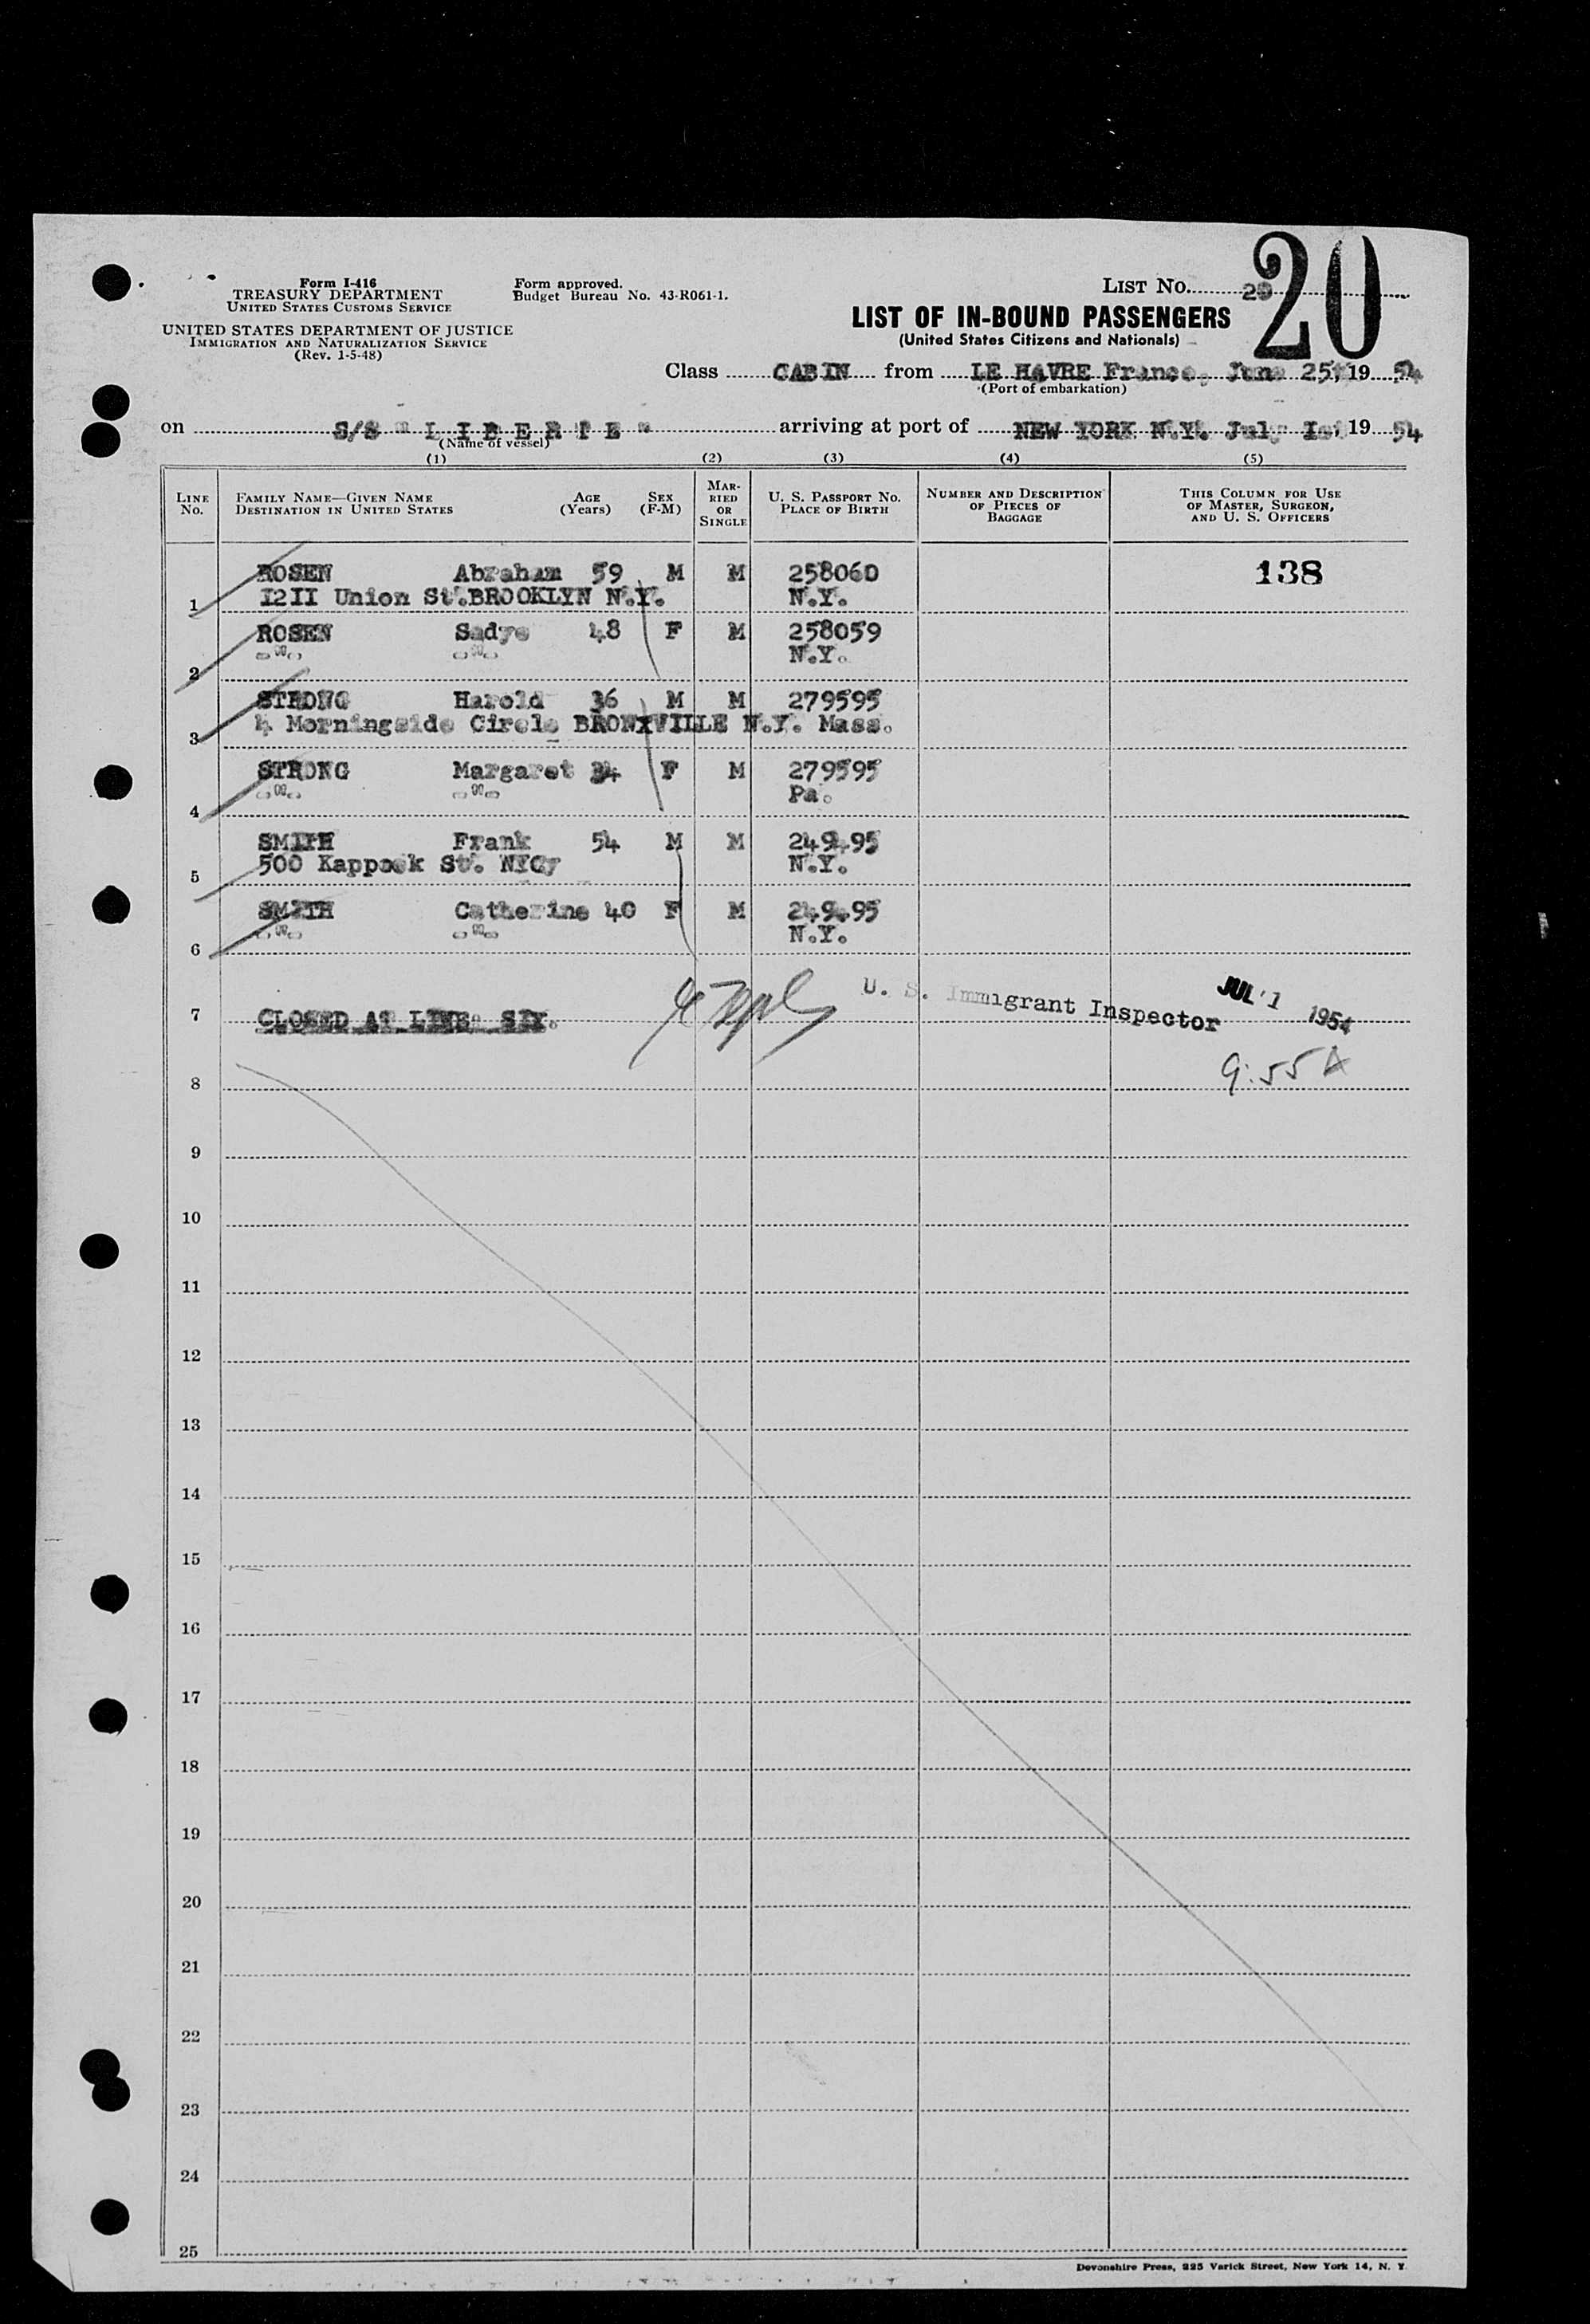 Form I-416
TREASURY DEPARTMENT
UNITED STATES CUSTOMS SERVICE
UNITED STATES DEPARTMENT OF JUSTICE
IMMIGRATION AND NATURALIZATION SERVICE
(Rev. 1-5-48)
Form approved.
Budget Bureau No. 43-R061-1.
LIST No. 20
20
LIST OF IN-BOUND PASSENGERS
(United States Citizens and Nationals)
Class CABIN from LE HAVRE France, June 25, 19 54
(Port of embarkation)
on S/S " L I B E R T E " arriving at port of NEW YORK N.Y. July Ist, 19 54
(Name of vessel)
(1) (2) (3) (4) (5)
LINE No. FAMILY NAME—GIVEN NAME DESTINATION IN UNITED STATES AGE (Years) SEX (F-M) MARRIED OR SINGLE U. S. PASSPORT No. PLACE OF BIRTH NUMBER AND DESCRIPTION OF PIECES OF BAGGAGE THIS COLUMN FOR USE OF MASTER, SURGEON, AND U. S. OFFICERS
ROSEN Abraham 59 M M 258060 138
1 I2II Union St.BROOKLYN N.Y. N.Y.
ROSEN Sadye 48 F M 258059
2 -"- -"- N.Y.
STRONG Harold 36 M M 279595
3 4 Morningside Circle BRONXVILLE N.Y. Mass.
STRONG Margaret 34 F M 279595
4 -"- -"- Pa.
SMITH Frank 54 M M 249495
5 500 Kappock St. NYCy N.Y.
SMITH Catherine 40 F M 249495
6 -"- -"- N.Y.
7 CLOSED AT LINE SIX.
U. S. Immigrant Inspector JUL 1 1954
9:55 A
8
9
10
11
12
13
14
15
16
17
18
19
20
21
22
23
24
25
Devonshire Press, 225 Varick Street, New York 14, N. Y.